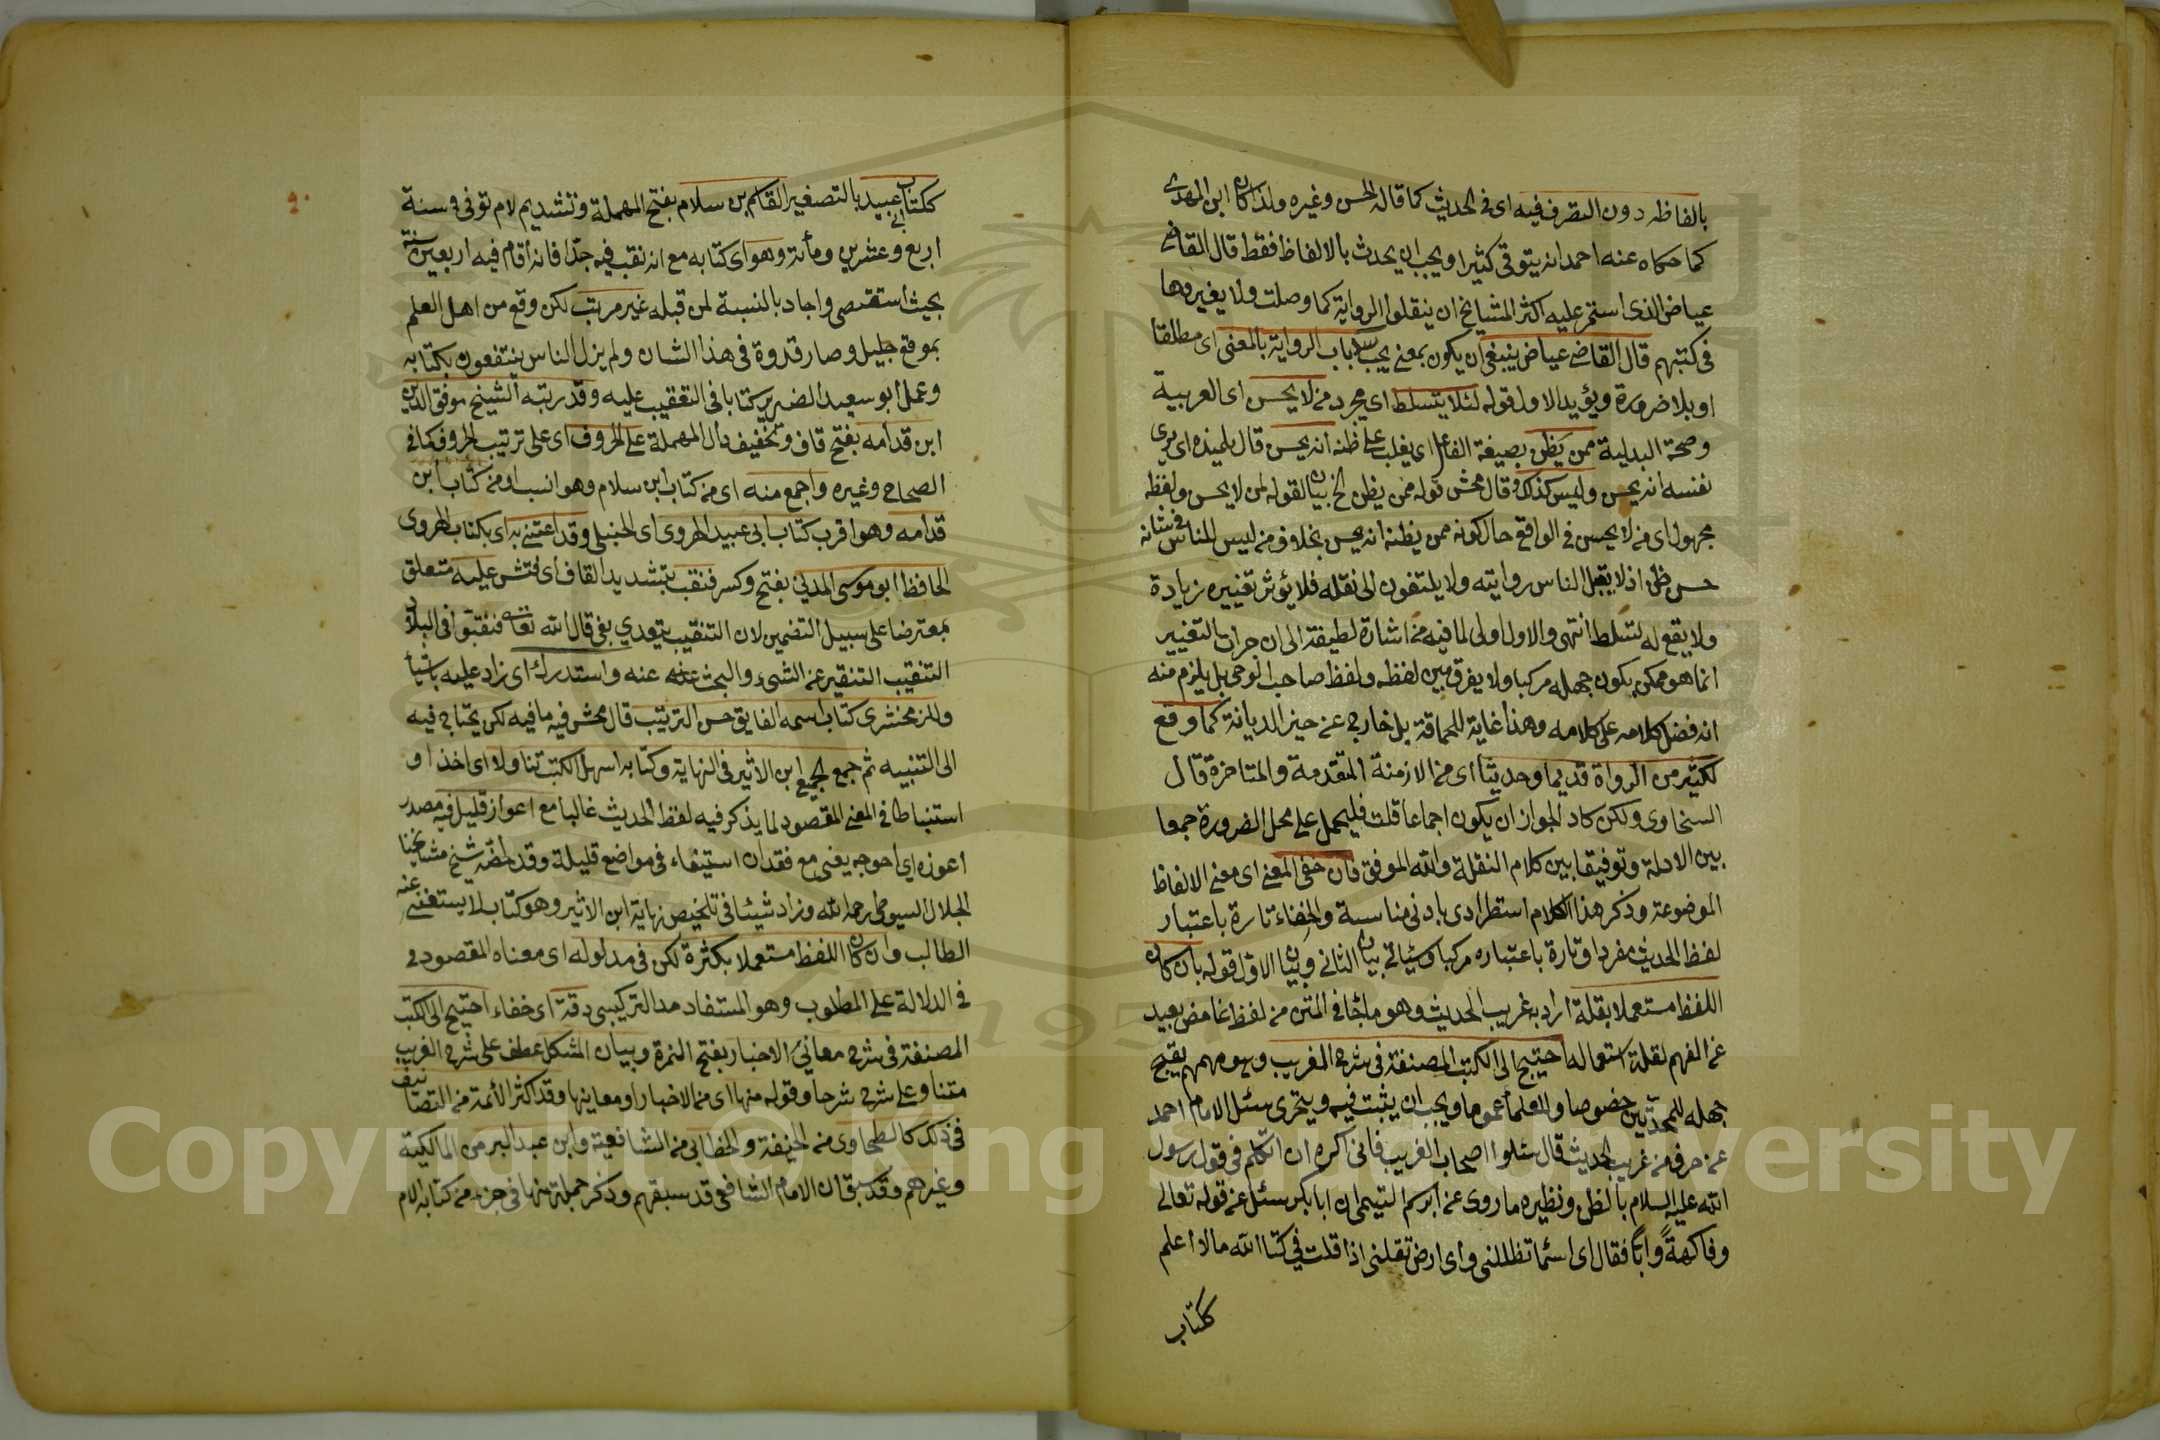 بالفاظه دون التصرف فيه اى فى الحديث كما قاله الحسن وغيره ولذا كان ابن المهدى
كما حكاه عنه احمد انه يتوقى كثيرا ويجب ان يحدث بالالفاظ فقط قال القاضى
عياض الذى استمر عليه اكثر المشايخ ان ينقلوا الرواية كما وصلت ولا يغيروها
فى كتبهم قال القاضى عياض ينبغى ان يكون بمعنى يجب سد باب الرواية بالمعنى اى مطلقا
او بلا ضرورة ويؤيد الاول قوله لئلا يتسلط اى يجرد من لا يحسن اى العربية
وصحة البدلية ممن يظن بصيغة الفاعل اى يغلب على ظنه انه يحسن قال تلميذه اى يرى
نفسه انه يحسن وليس كذلك وقال محش قوله ممن يظن الخ بيان لقوله لمن لا يحسن ولفظه
مجهول اى من لا يحسن فى الواقع حال كونه ممن يظنه انه يحسن بخلاف من ليس للناس فى شانه
حسن ظن اذ لا يقبل الناس روايته ولا يلتفون الى نقله فلا يؤثر تغييره زيادة
ولا يقع له تسلط انتهى والاول اولى لما فيه من اشارة لطيفة الى ان جرات التغيير
انما هو ممكن يكون جهله مركبا ولا يفرق بين لفظه ولفظ صاحب الوحى بل يلزم منه
انه فضل كلامه على كلامه وهذا غاية للحماقة بل خارج عن حيز الديانة كما وقع
لكثير من الرواة قديما وحديثا اى من الازمنة المتقدمة والمتاخرة قال
السخاوى ولكن كاد الجواز ان يكون اجماعا قلت فليحمل على محل الضرورة جمعا
بين الادلة وتوفيقا بين كلام النقلة والله الموفق فان خفى المعنى اى معنى الالفاظ
الموضوعة وذكر هذا الكلام استطرادى بادنى مناسبة والخفاء تارة باعتبار
لفظ الحديث مفردا وتارة باعتباره مركبا وسياتى بيان الثانى وبيان الاول قوله بان كان
اللفظ مستعملا بقلة اراد به غريب الحديث وهو ما جا فى المتن من لفظ غامض بعيد
عن الفهم لقلة استعماله احتيج الى الكتب المصنفة فى شرح الغريب وهو مهم يقبح
جهله للمحدثين خصوصا وللعلما عموما ويجب ان يثبت فيه ويتحرى سئل الامام احمد
عن حرف من غريب الحديث قال سئلوا اصحاب الغريب فانى اكره ان اتكلم فى قول رسول
الله عليه السلام بالظن ونظيره ما روى عن ابرهيم التيمى ان ابا بكر سئل عن قوله تعالى
وفاكهةً وابًّا فقال اى سماء تظلنى واى ارض تقلنى اذا قلت فى كتاب الله ما لا اعلم
ككتاب
ككتاب ابى عبيد بالتصغير القاسم بن سلام بفتح المهملة وتشديد لام توفى فى سنة
اربع وعشرين ومأتة وهو اى كتابه مع انه نقب فيه جدّا فانه اقام فيه اربعين سنة
بحيث استقصى واجاد بالنسبة لمن قبله غير مرتب لكن وقع من اهل العلم
بموقع جليل وصار قدوة فى هذا الشان ولم يزل الناس ينتفعون بكتابه
وعمل ابو سعيد الضرير كتابا فى التعقيب عليه وقد رتبه الشيخ موفق الدين
ابن قدامه بفتح قاف وتخفيف دال المهملة على الحروف اى على ترتيب الحروف كما فى
الصحاح وغيره واجمع منه اى من كتاب ابن سلام وهو انسب او من كتاب ابن
قدامه وهو اقرب كتاب ابى عبيد الهروى اى الحنبلى وقد اعتنى به اى بكتاب الهروى
الحافظ ابو موسى المدينى بفتح وكسر فنقب بتشديد القاف اى فتش عليه متعلق
بمعترضا على سبيل التضمين لان التنقيب يتعدى بفى قال الله تعالى فنقبوا فى البلاد
التنقيب التنقير عن الشئ والبحث عنه واستدرك اى زاد عليه باشيا
وللزمخشرى كتاب اسمه الفايق حسن الترتيب قال محش فيه ما فيه لكن يحتاج فيه
الى التنبيه ثم جمع الجميع ابن الاثير فى النهاية وكتابه اسهل الكتب تناولا اى اخذا او
استنباطا فى المعنى المقصود لما يذكر فيه لفظ الحديث غالبا مع اعواز قليل فيه مصدر
اعوزه اى احوجه يعنى مع فقدان استيفاء فى مواضع قليلة وقد لخصه شيخ مشايخنا
الجلال السيوطى رحمه الله وزاد شيئا فى تلخيص نهاية ابن الاثير وهو كتاب لا يستغنى عنه
الطالب وان كان اللفظ مستعملا بكثرة لكن فى مدلوله اى معناه المقصود فى
فى الدلالة على المطلوب وهو المستفاد مد التركيبى دقة اى خفاء احتيج الى الكتب
المصنفة فى شرح معانى الاخبار بفتح الهمزة وبيان المشكل عطف على شرح الغريب
متنا وعلى شرح شرحا وقوله منها اى من الاخبار او معاينها وقد اكثر الأئمة من التصانيف
فى ذلك كالطحاوى من الحنيفة والخطابى من الشافعية وابن عبد البر من المالكية
وغيرهم وقد سبق ان الامام الشافعى قد سبقهم وذكر جملة منها فى جزء من كتابه الام
Copyright © King Saud University
1957